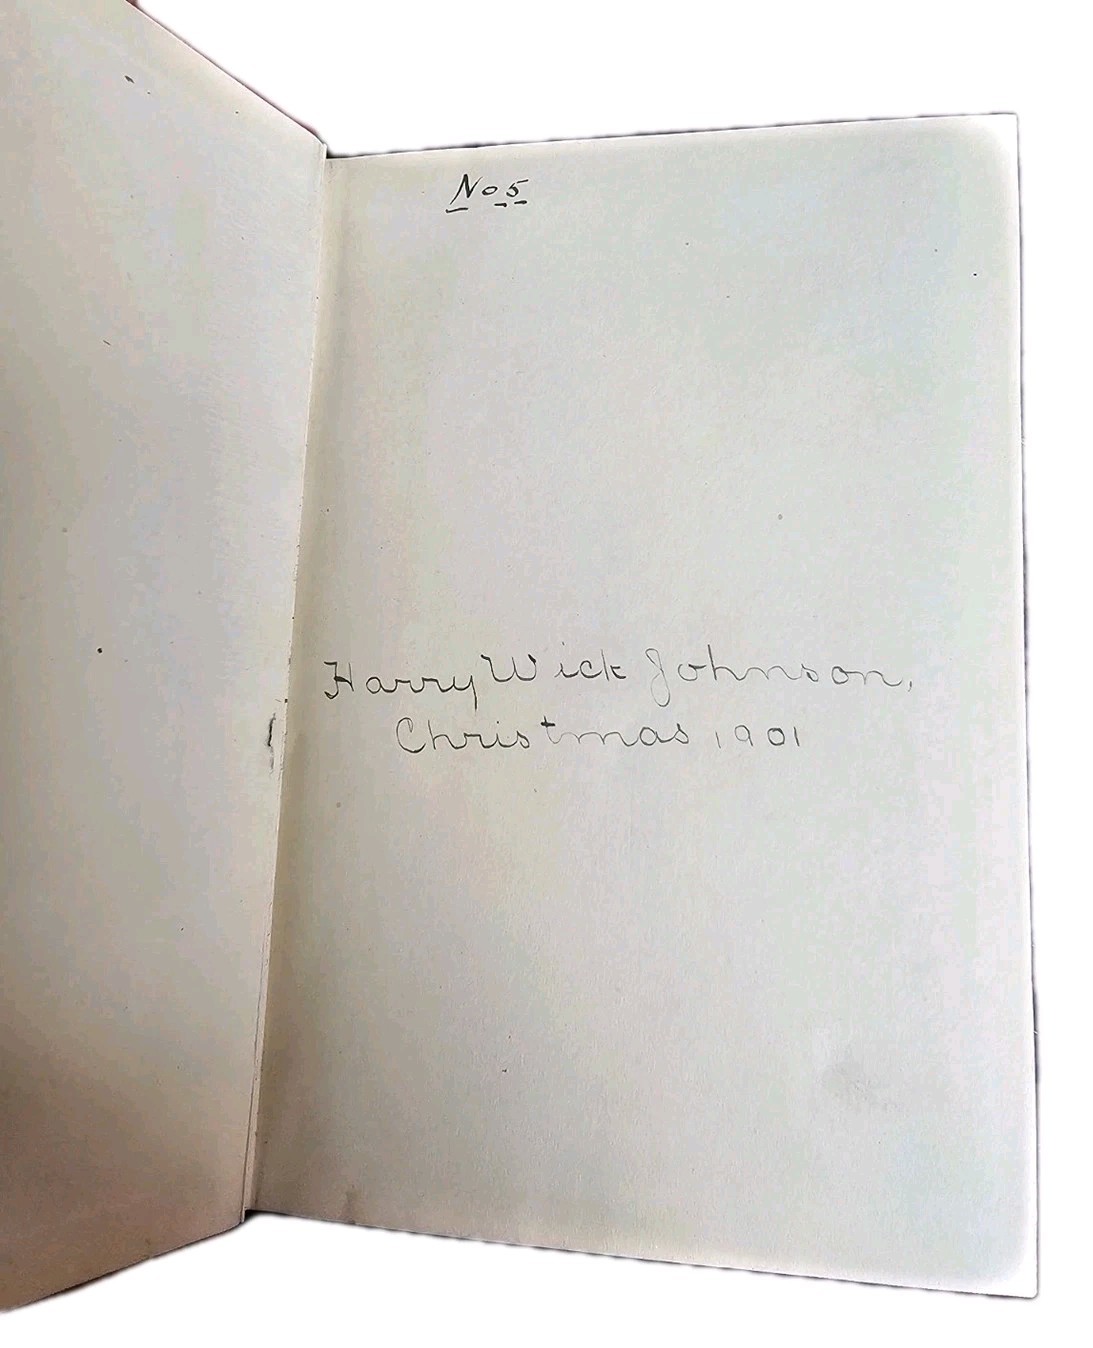 No 5
Harry Wick Johnson,
Christmas 1901